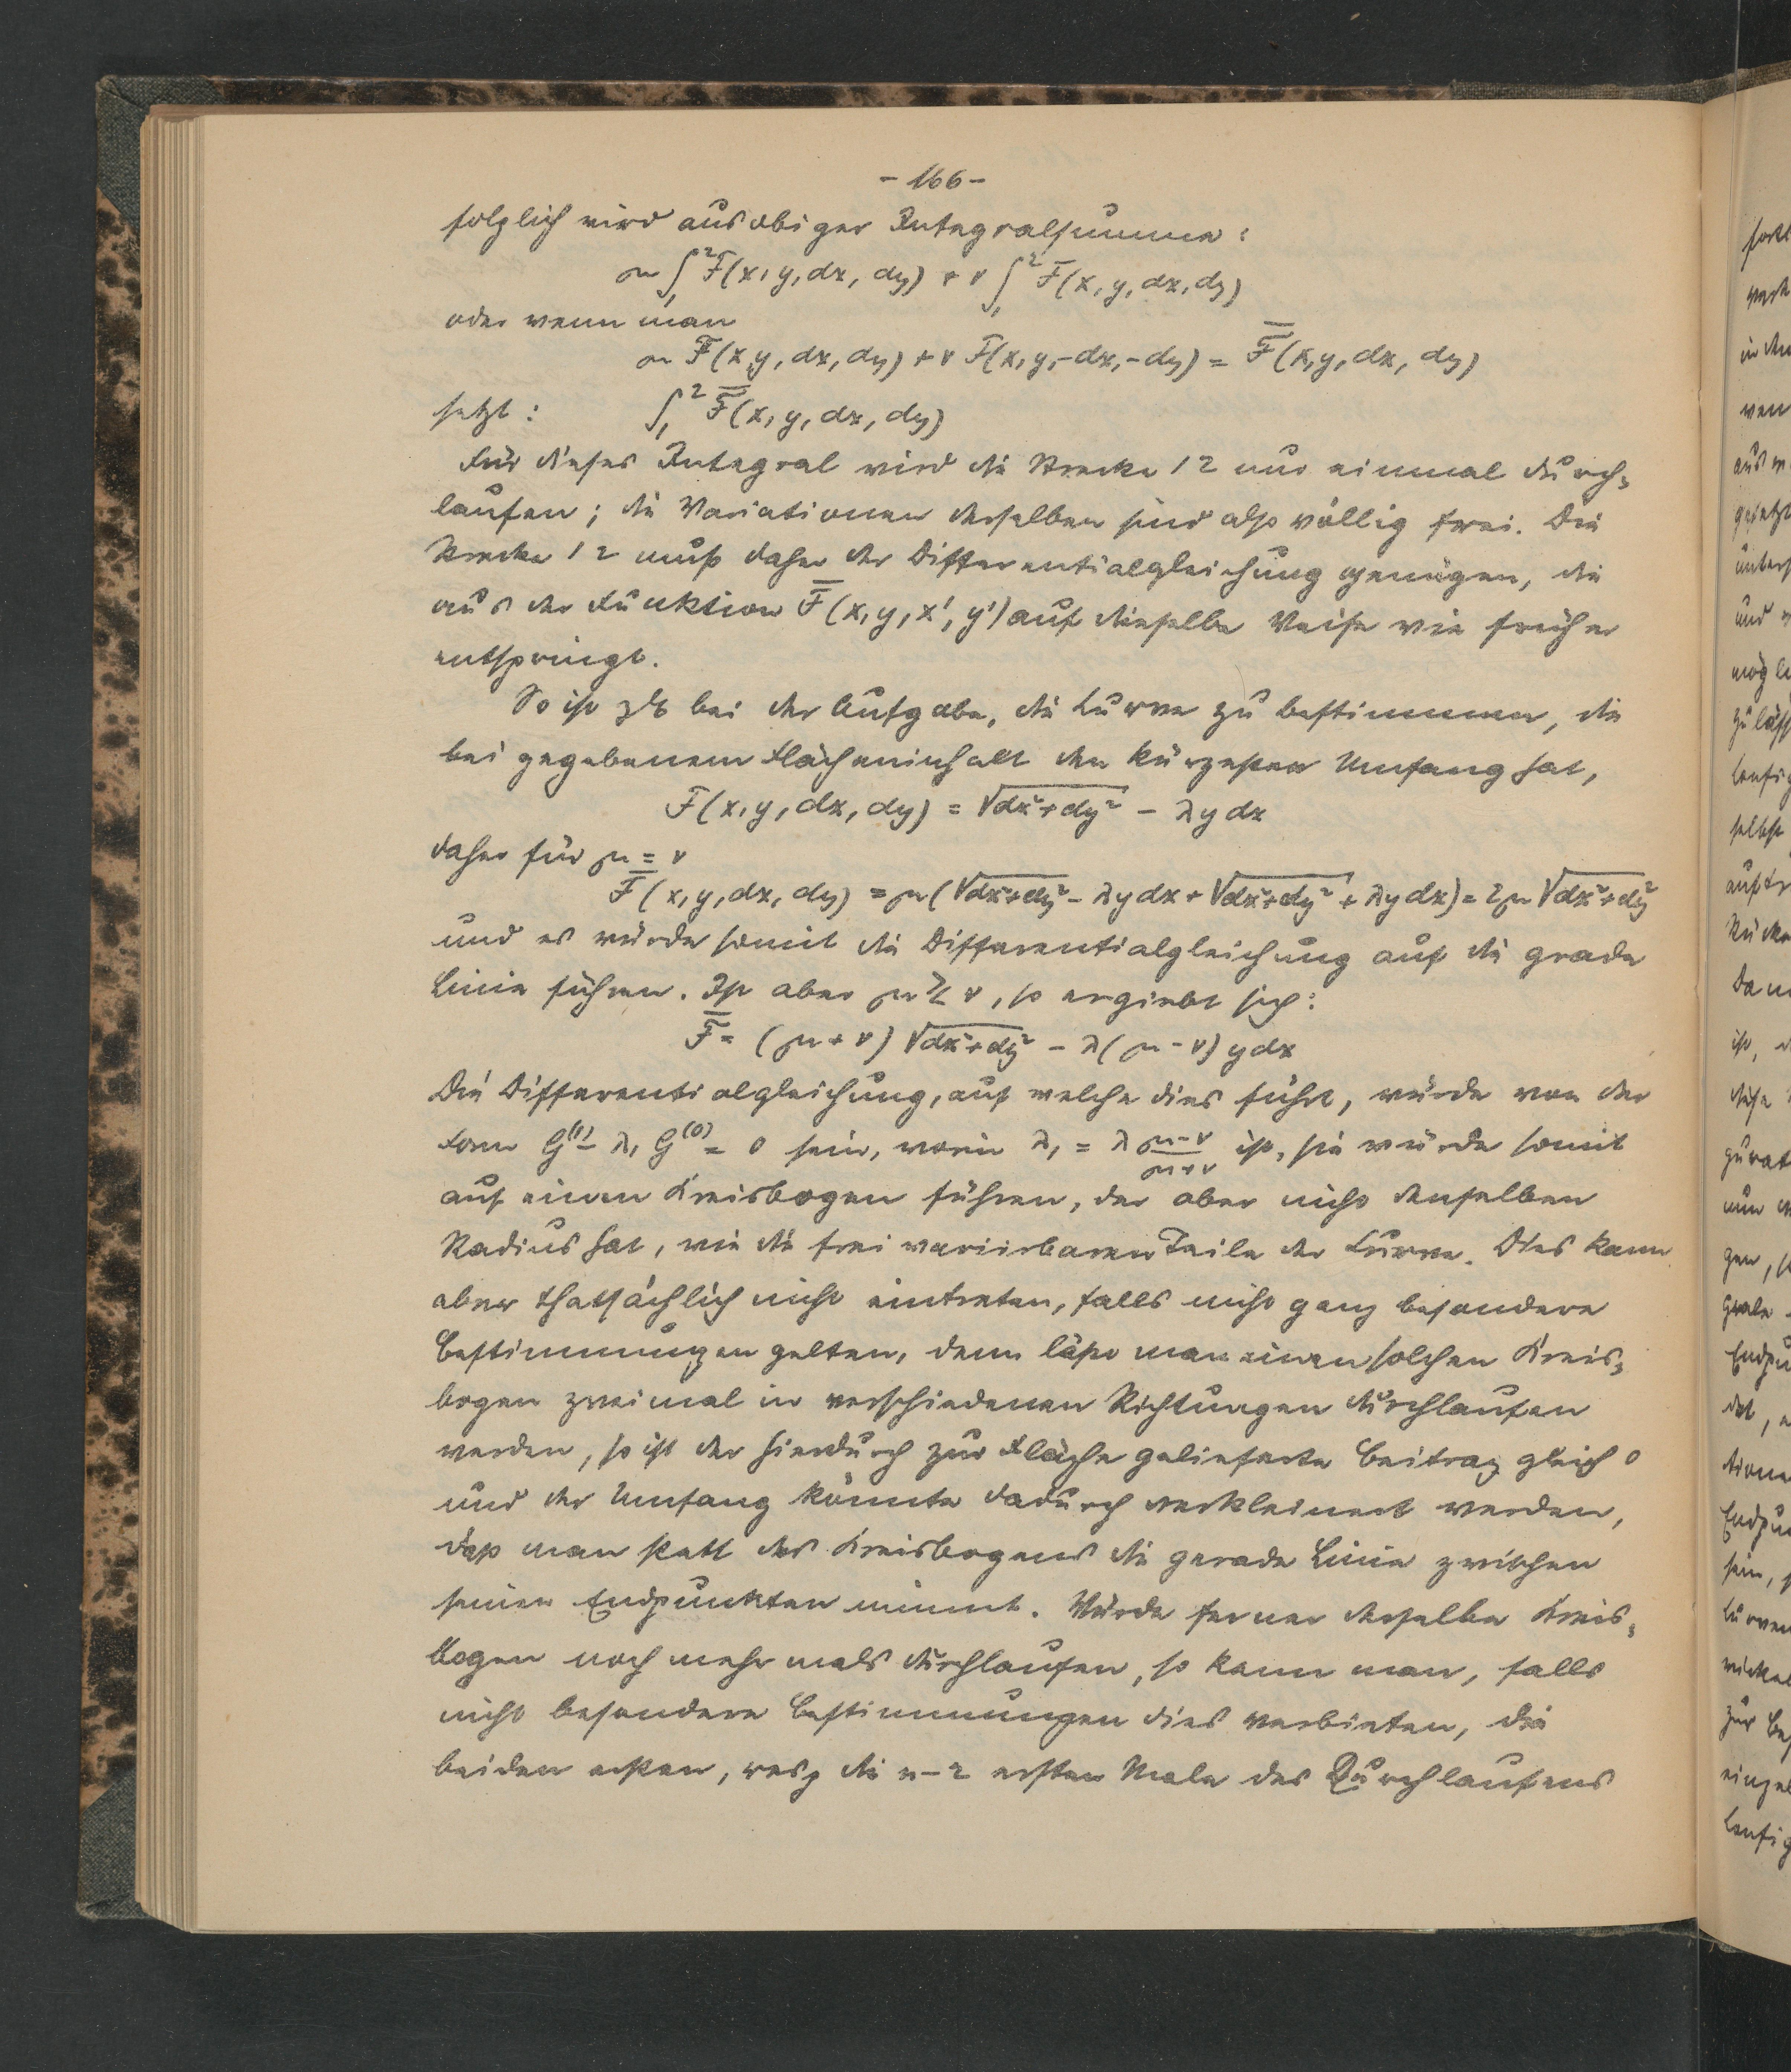 - 166 -
folglich wird aus obiger Integralsumme:
μ ∫₁² F(x, y, dx, dy) + ν ∫₁² F̄(x, y, dx, dy)
oder wenn man
μ F(x, y, dx, dy) + ν F(x, y, -dx, -dy) = F̿(x, y, dx, dy)
setzt: ∫₁² F̿(x, y, dx, dy)
Für dieses Integral wird die Strecke 12 nur einmal durch=
laufen; die Variationen derselben sind also völlig frei. Die
Strecke 12 muß daher der Differentialgleichung genügen, die
aus der Funktion F̿(x, y, x', y') auf dieselbe Weise wie früher
entspringt.
So ist zB bei der Aufgabe, die Curve zu bestimmen, die
bei gegebenem Flächeninhalt den kürzesten Umfang hat,
F(x, y, dx, dy) = √dx²+dy² - λ y dx
daher für μ = ν
F̿(x, y, dx, dy) = μ(√dx²+dy² - λ y dx + √dx²+dy² + λ y dx) = 2μ √dx²+dy²
und es würde somit die Differentialgleichung auf die grade
Linie führen. Ist aber μ ≷ ν, so ergiebt sich:
F̿ = (μ + ν) √dx²+dy² - λ(μ - ν) y dx
Die Differentialgleichung, auf welche dies führt, würde von der
Form G⁽¹⁾ - λ₁ G⁽⁰⁾ = 0 sein, worin λ₁ = λ (μ-ν)/(μ+ν) ist, sie würde somit
auf einen Kreisbogen führen, der aber nicht denselben
Radius hat, wie die frei variirbaren Teile der Curve. Dies kann
aber thatsächlich nicht eintreten, falls nicht ganz besondere
Bestimmungen gelten, denn läßt man einen solchen Kreis=
bogen zweimal in verschiedenen Richtungen durchlaufen
werden, so ist der hierdurch zur Fläche gelieferte Beitrag gleich 0
und der Umfang könnte dadurch verkleinert werden,
daß man statt des Kreisbogens die gerade Linie zwischen
seinen Endpunkten nimmt. Würde ferner derselbe Kreis=
bogen noch mehrmals durchlaufen, so kann man, falls
nicht besondere Bestimmungen dies verbieten, die
beiden ersten, resp die n-2 ersten Male des Durchlaufens